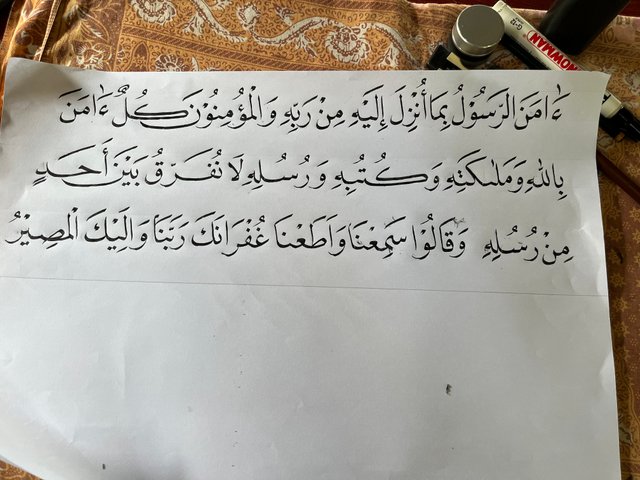 ءَامَنَ الرَّسُوْلُ بِمَا أُنْزِلَ إِلَيْهِ مِنْ رَبِّهِ وَالْمُؤْمِنُوْنَ كُلٌّ ءَامَنَ
بِاللهِ وَمَلٰئِكَتِهِ وَكُتُبِهِ وَرُسُلِهِ لَا نُفَرِّقُ بَيْنَ أَحَدٍ
مِنْ رُسُلِهِ وَقَالُوْا سَمِعْنَا وَاَطَعْنَا غُفْرَانَكَ رَبَّنَا وَاِلَيْكَ الْمَصِيْرُ
SNOWMAN